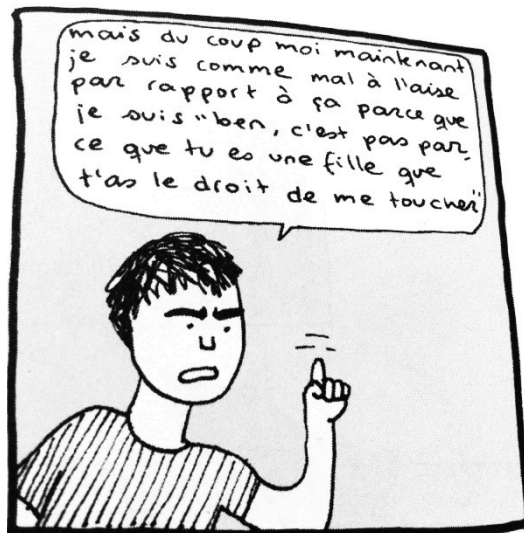 mais du coup moi maintenant
je suis comme mal à l'aise
par rapport à ça parce que
je suis "ben, c'est pas par-
ce que tu es une fille que
t'as le droit de me toucher"